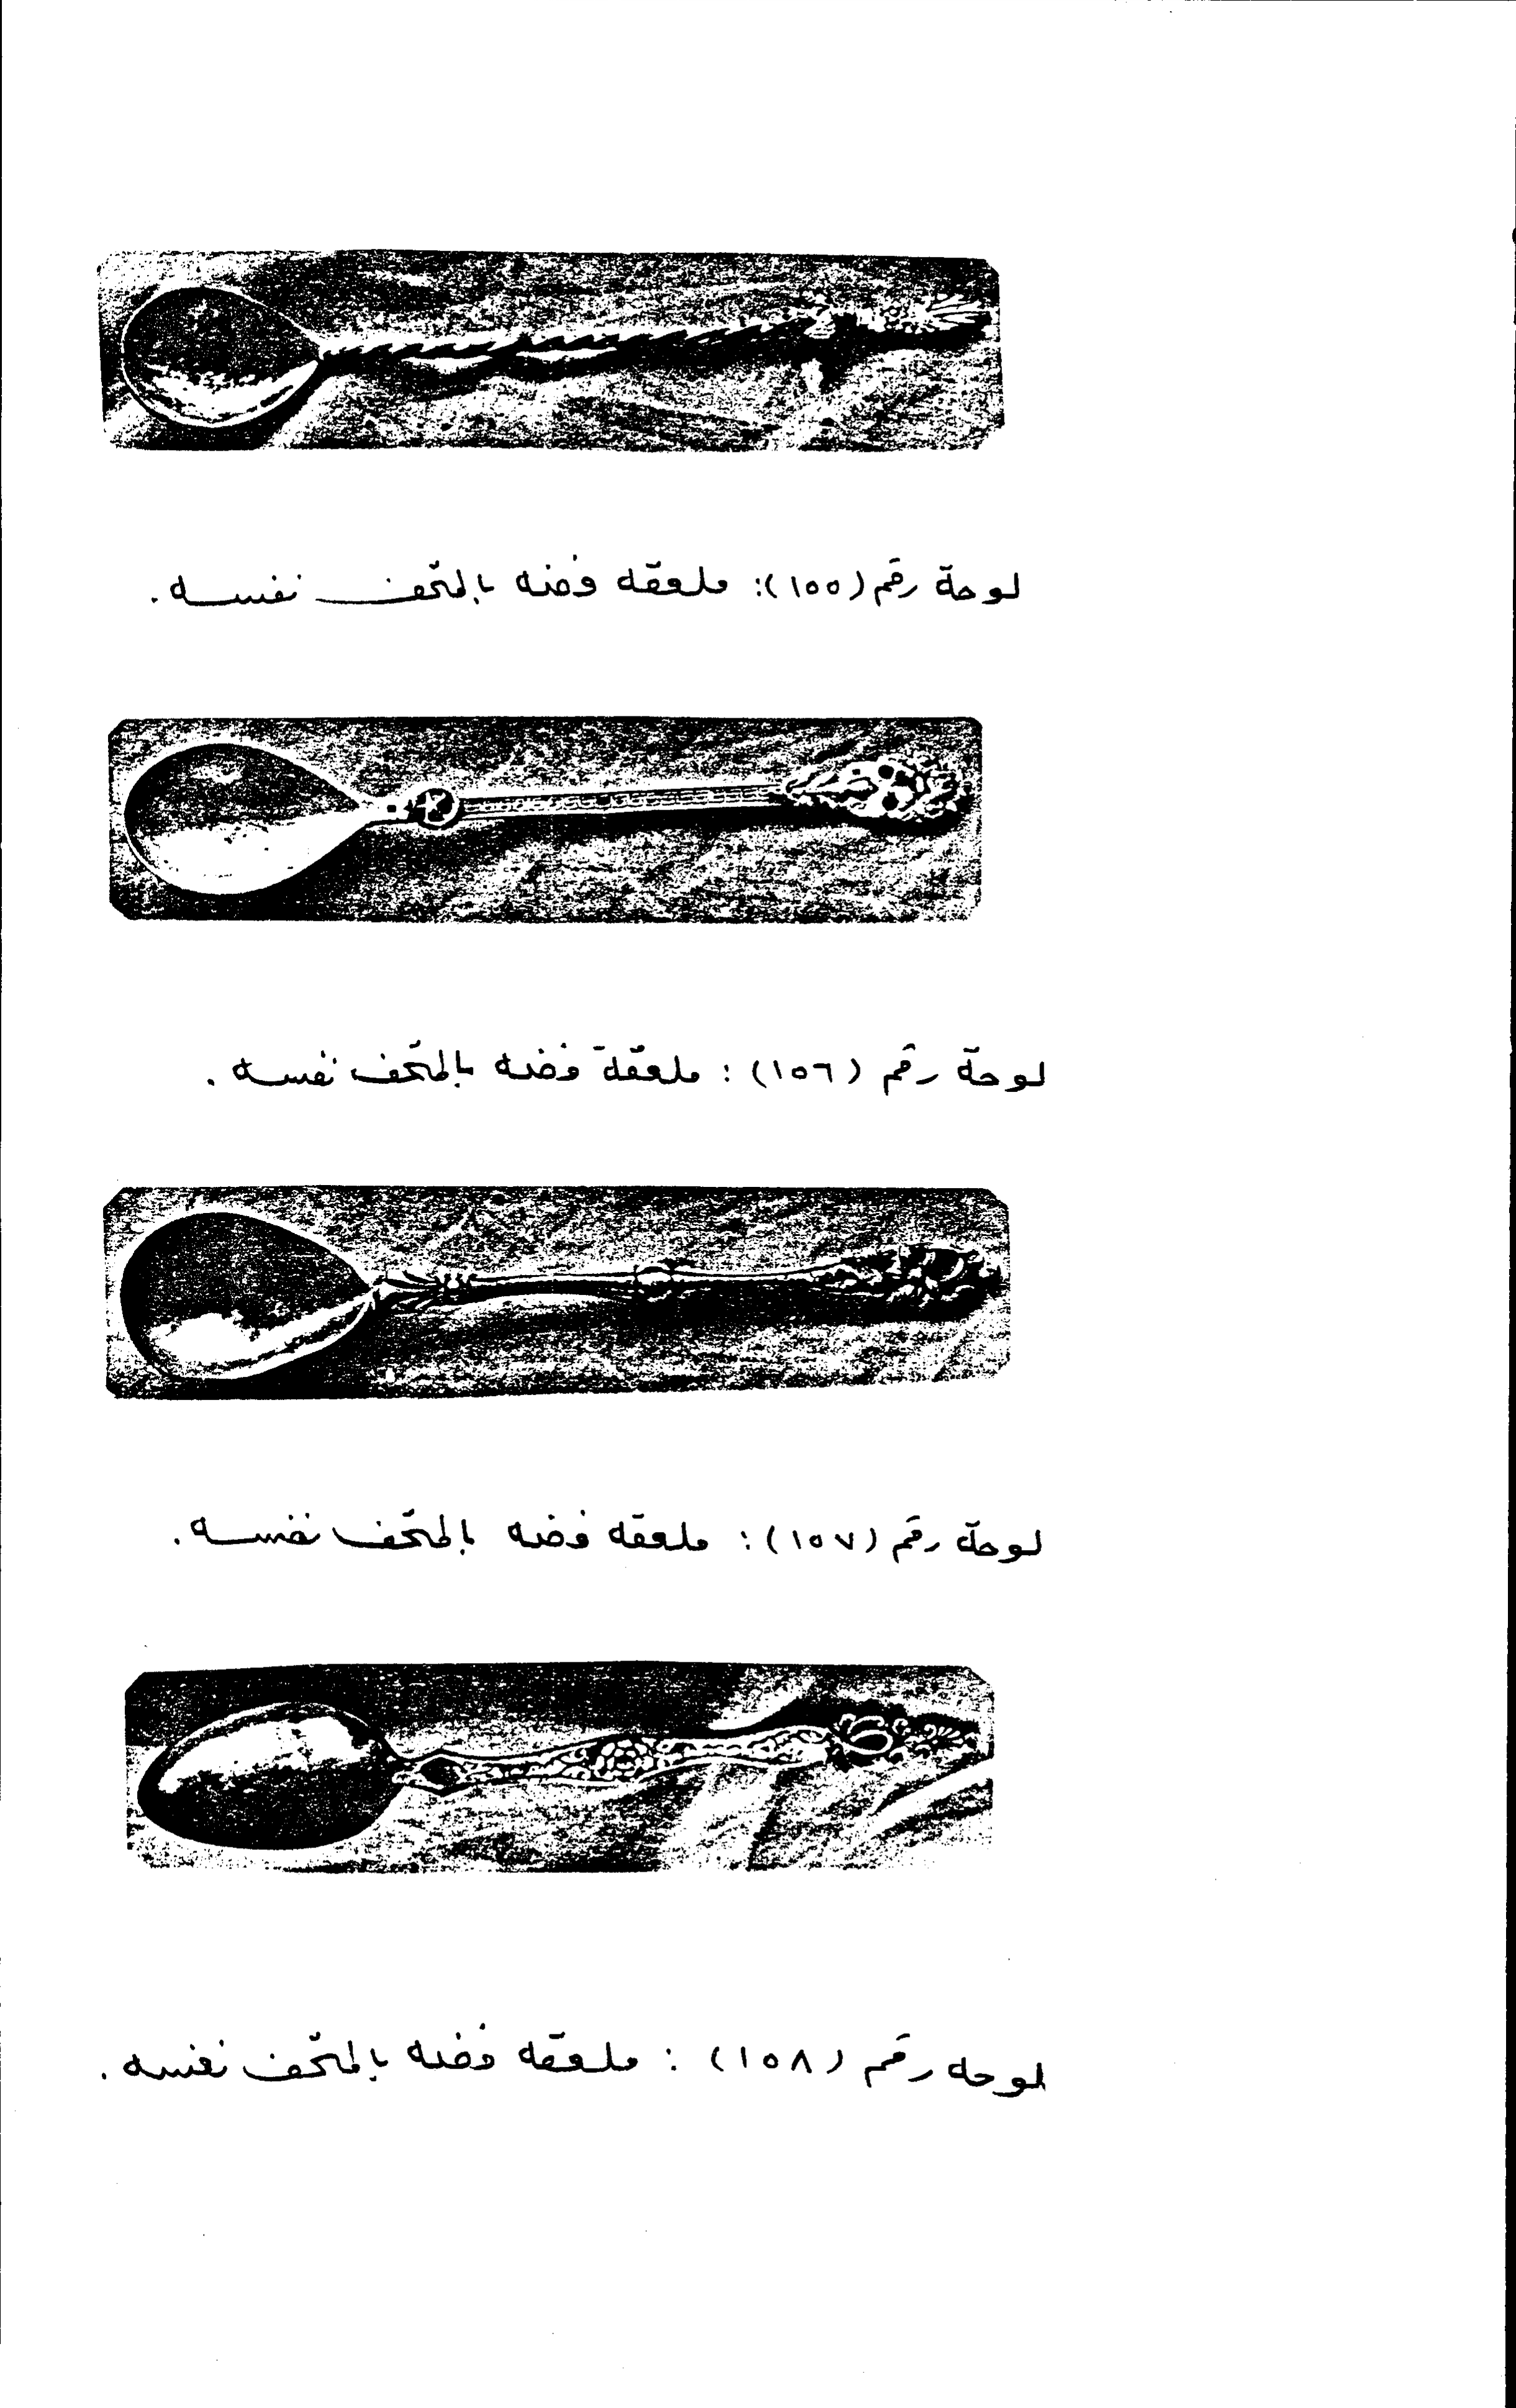 لوحة رقم (١٥٥): ملعقه فضه بالمتحف نفسه.
لوحة رقم (١٥٦) : ملعقة فضه بالمتحف نفسه .
لوحة رقم (١٥٧) : ملعقه فضه بالمتحف نفسه.
لوحه رقم (١٥٨) : ملعقه فضه بالمتحف نفسه .